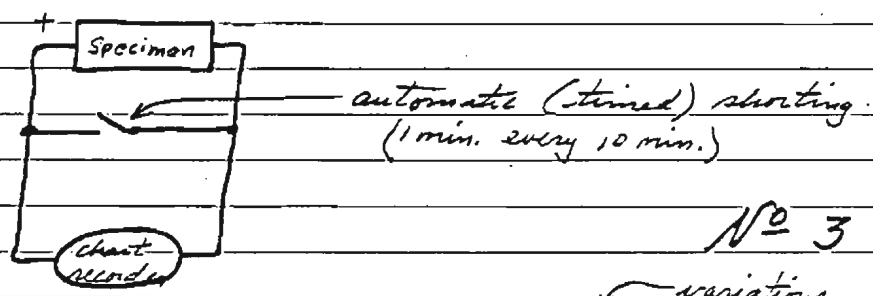 +
Specimen
automatic (timed) shorting.
(1 min. every 10 min.)
Nº 3
chart
recorder
variation